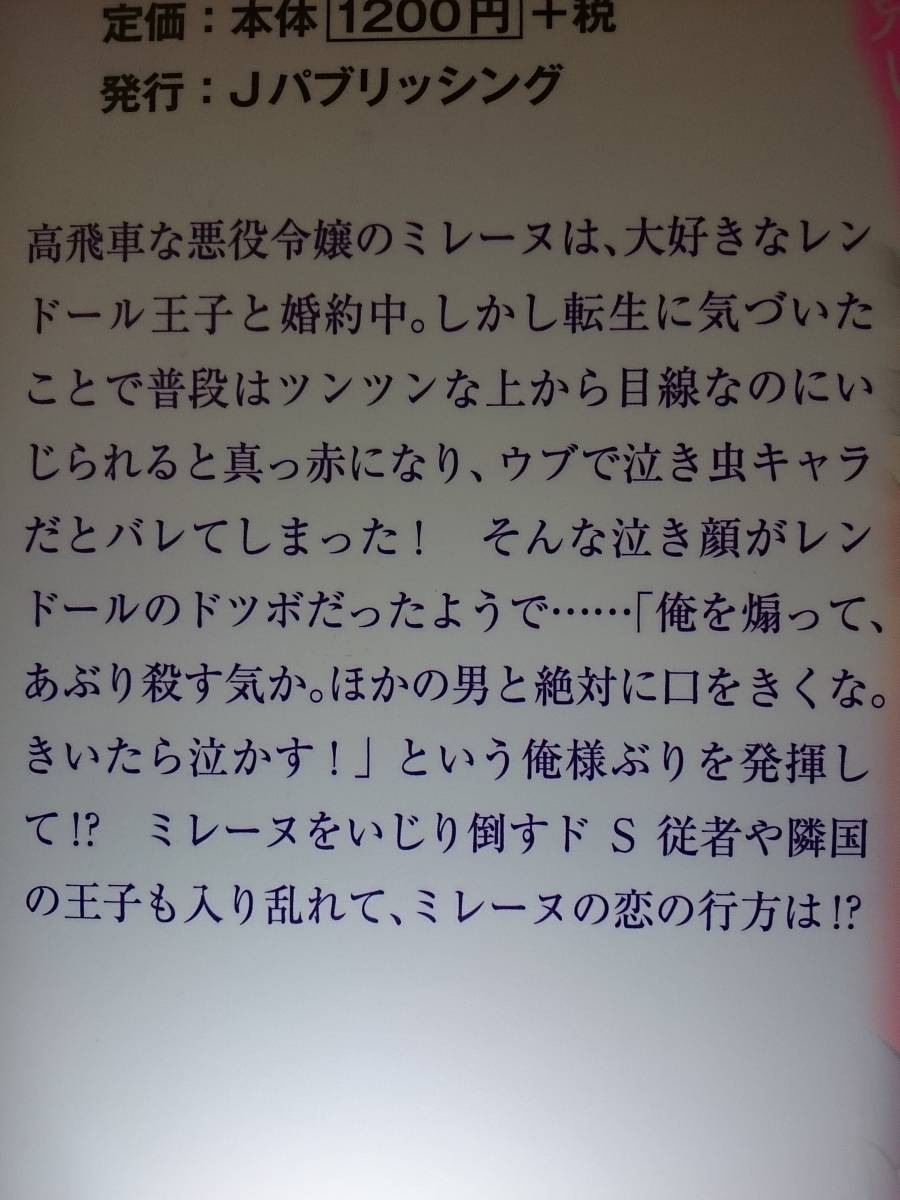 定価：本体1200円＋税
発行：Jパブリッシング
高飛車な悪役令嬢のミレーヌは、大好きなレン
ドール王子と婚約中。しかし転生に気づいた
ことで普段はツンツンな上から目線なのにい
じられると真っ赤になり、ウブで泣き虫キャラ
だとバレてしまった！　そんな泣き顔がレン
ドールのドツボだったようで……「俺を煽って、
あぶり殺す気か。ほかの男と絶対に口をきくな。
きいたら泣かす！」という俺様ぶりを発揮し
て!?　ミレーヌをいじり倒すドS従者や隣国
の王子も入り乱れて、ミレーヌの恋の行方は!?